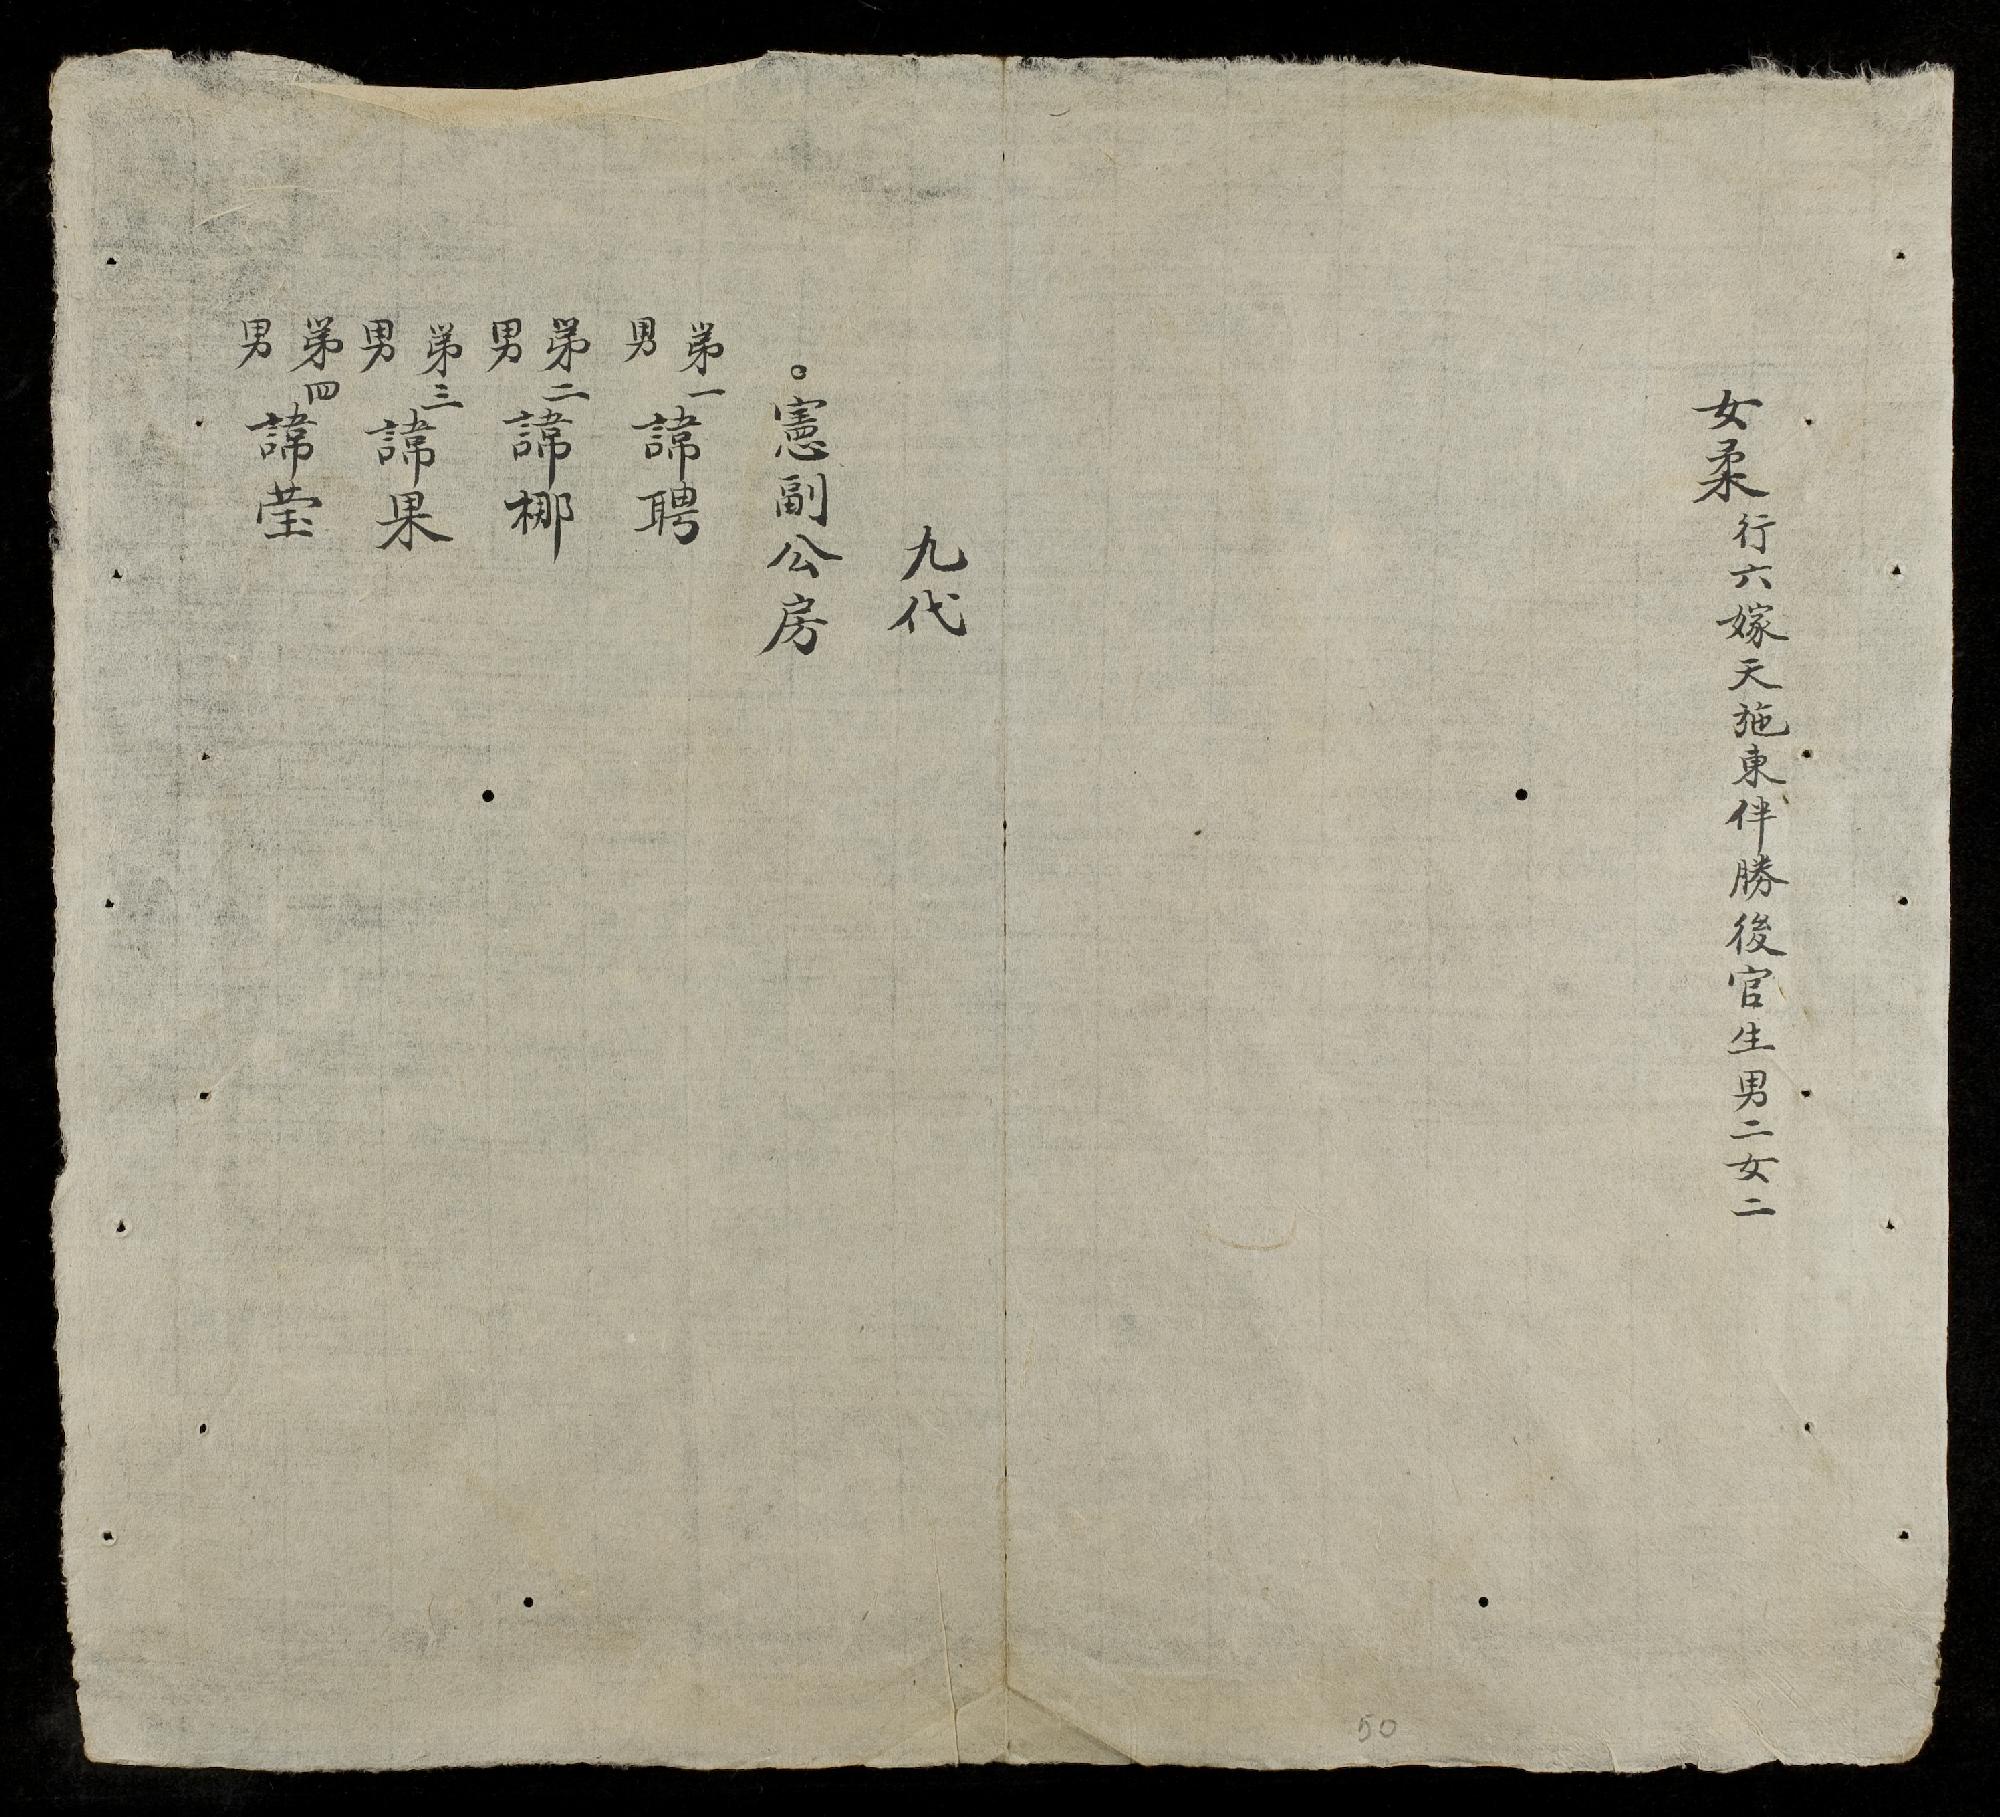 女柔行六嫁天施東伴勝後官生男二女二
九代
。憲副公房
第一男諱聘
第二男諱梛
第三男諱果
第四男諱瑩
50